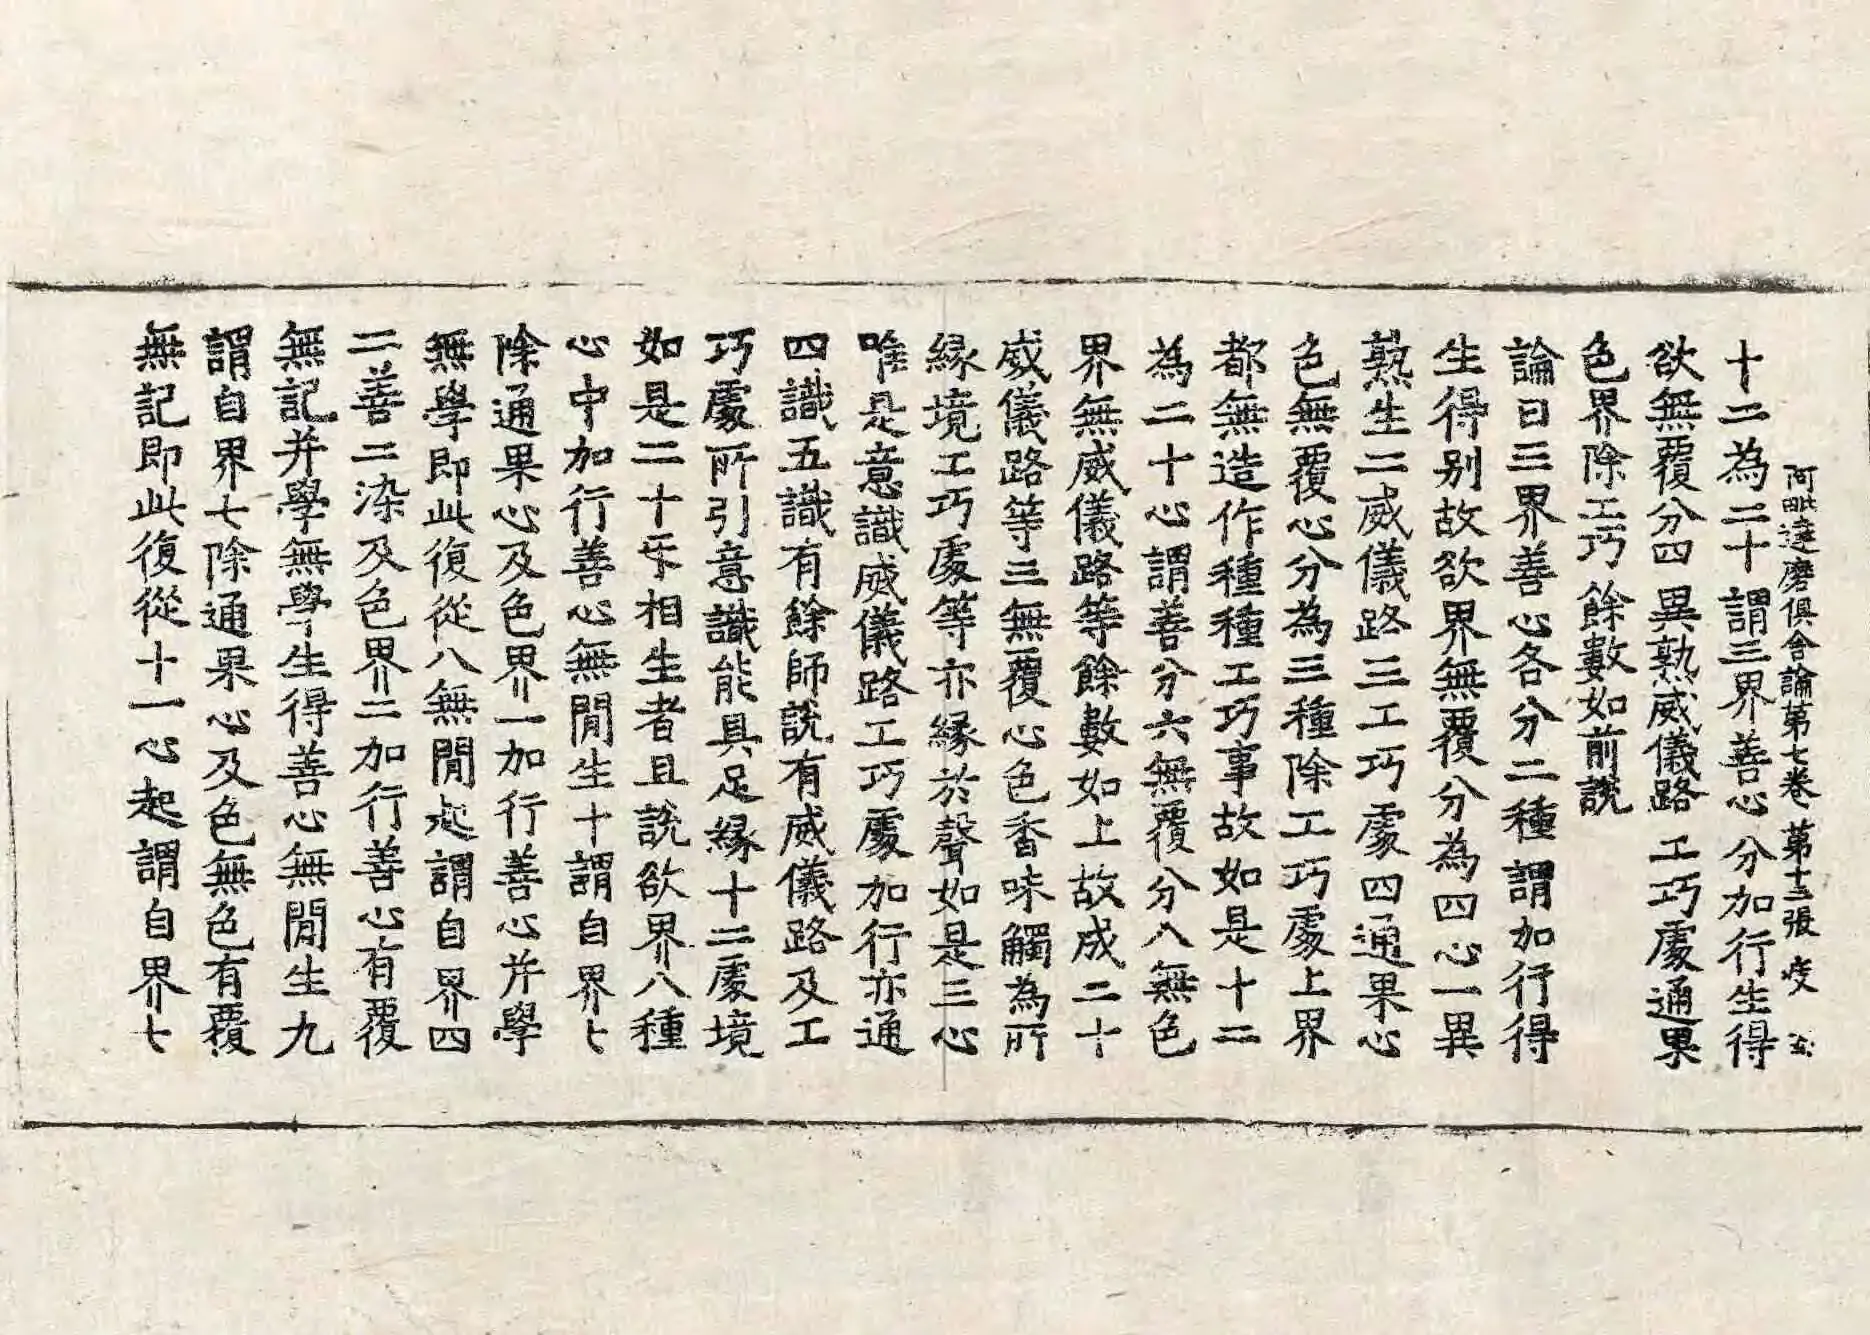 阿毗達磨俱舍論第七卷 第十三張 疲
十二為二十 謂三界善心 分加行生得
欲無覆分四 異熟威儀路 工巧處通果
色界除工巧 餘數如前說
論曰三界善心各分二種謂加行得
生得别故欲界無覆分為四心一異
熟生二威儀路三工巧處四通果心
色無覆心分為三種除工巧處上界
都無造作種種工巧事故如是十二
為二十心謂善分六無覆分八無色
界無威儀路等餘數如上故成二十
威儀路等三無覆心色香味觸為所
緣境工巧處等亦緣於聲如是三心
唯是意識威儀路工巧處加行亦通
四識五識有餘師說有威儀路及工
巧處所引意識能具足緣十二處境
如是二十互相生者且說欲界八種
心中加行善心無閒生十謂自界七
除通果心及色界一加行善心并學
無學即此復從八無閒起謂自界四
二善二染及色界二加行善心有覆
無記并學無學生得善心無閒生九
謂自界七除通果心及色無色有覆
無記即此復從十一心起謂自界七